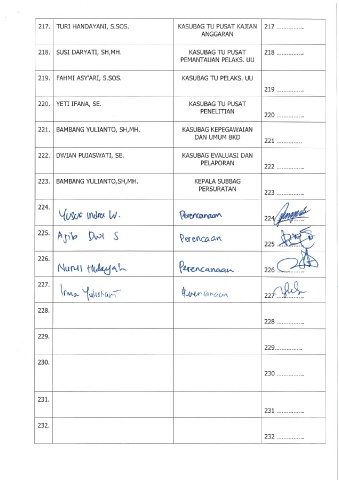 217. TURI HANDAYANI, S.SOS. KASUBAG TU PUSAT KAJIAN 217 ...............
ANGGARAN
218. SUSI DARYATI, SH,MH. KASUBAG TU PUSAT 218 ...............
PEMANTAUAN PELAKS. UU
219. FAHMI ASY'ARI, S.SOS. KASUBAG TU PELAKS. UU
219 ...............
220. YETI IFANA, SE. KASUBAG TU PUSAT
PENELITIAN 220 ...............
221. BAMBANG YULIANTO, SH,MH. KASUBAG KEPEGAWAIAN
DAN UMUM BKD 221 ..............
222. DWIAN PUJASWATI, SE. KASUBAG EVALUASI DAN
PELAPORAN 222 ...............
223. BAMBANG YULIANTO,SH,MH. KEPALA SUBBAG
PERSURATAN 223 ...............
224. Yusus Indra W. Perencanaan 224
225. Ajib Dwi S Perencaan 225
226. Nurul Hidayah Perencanaan 226
227. Irma Perencanaan 227
228.
228 ...............
229.
229...............
230.
230 ...............
231.
231 ...............
232.
232 ...............